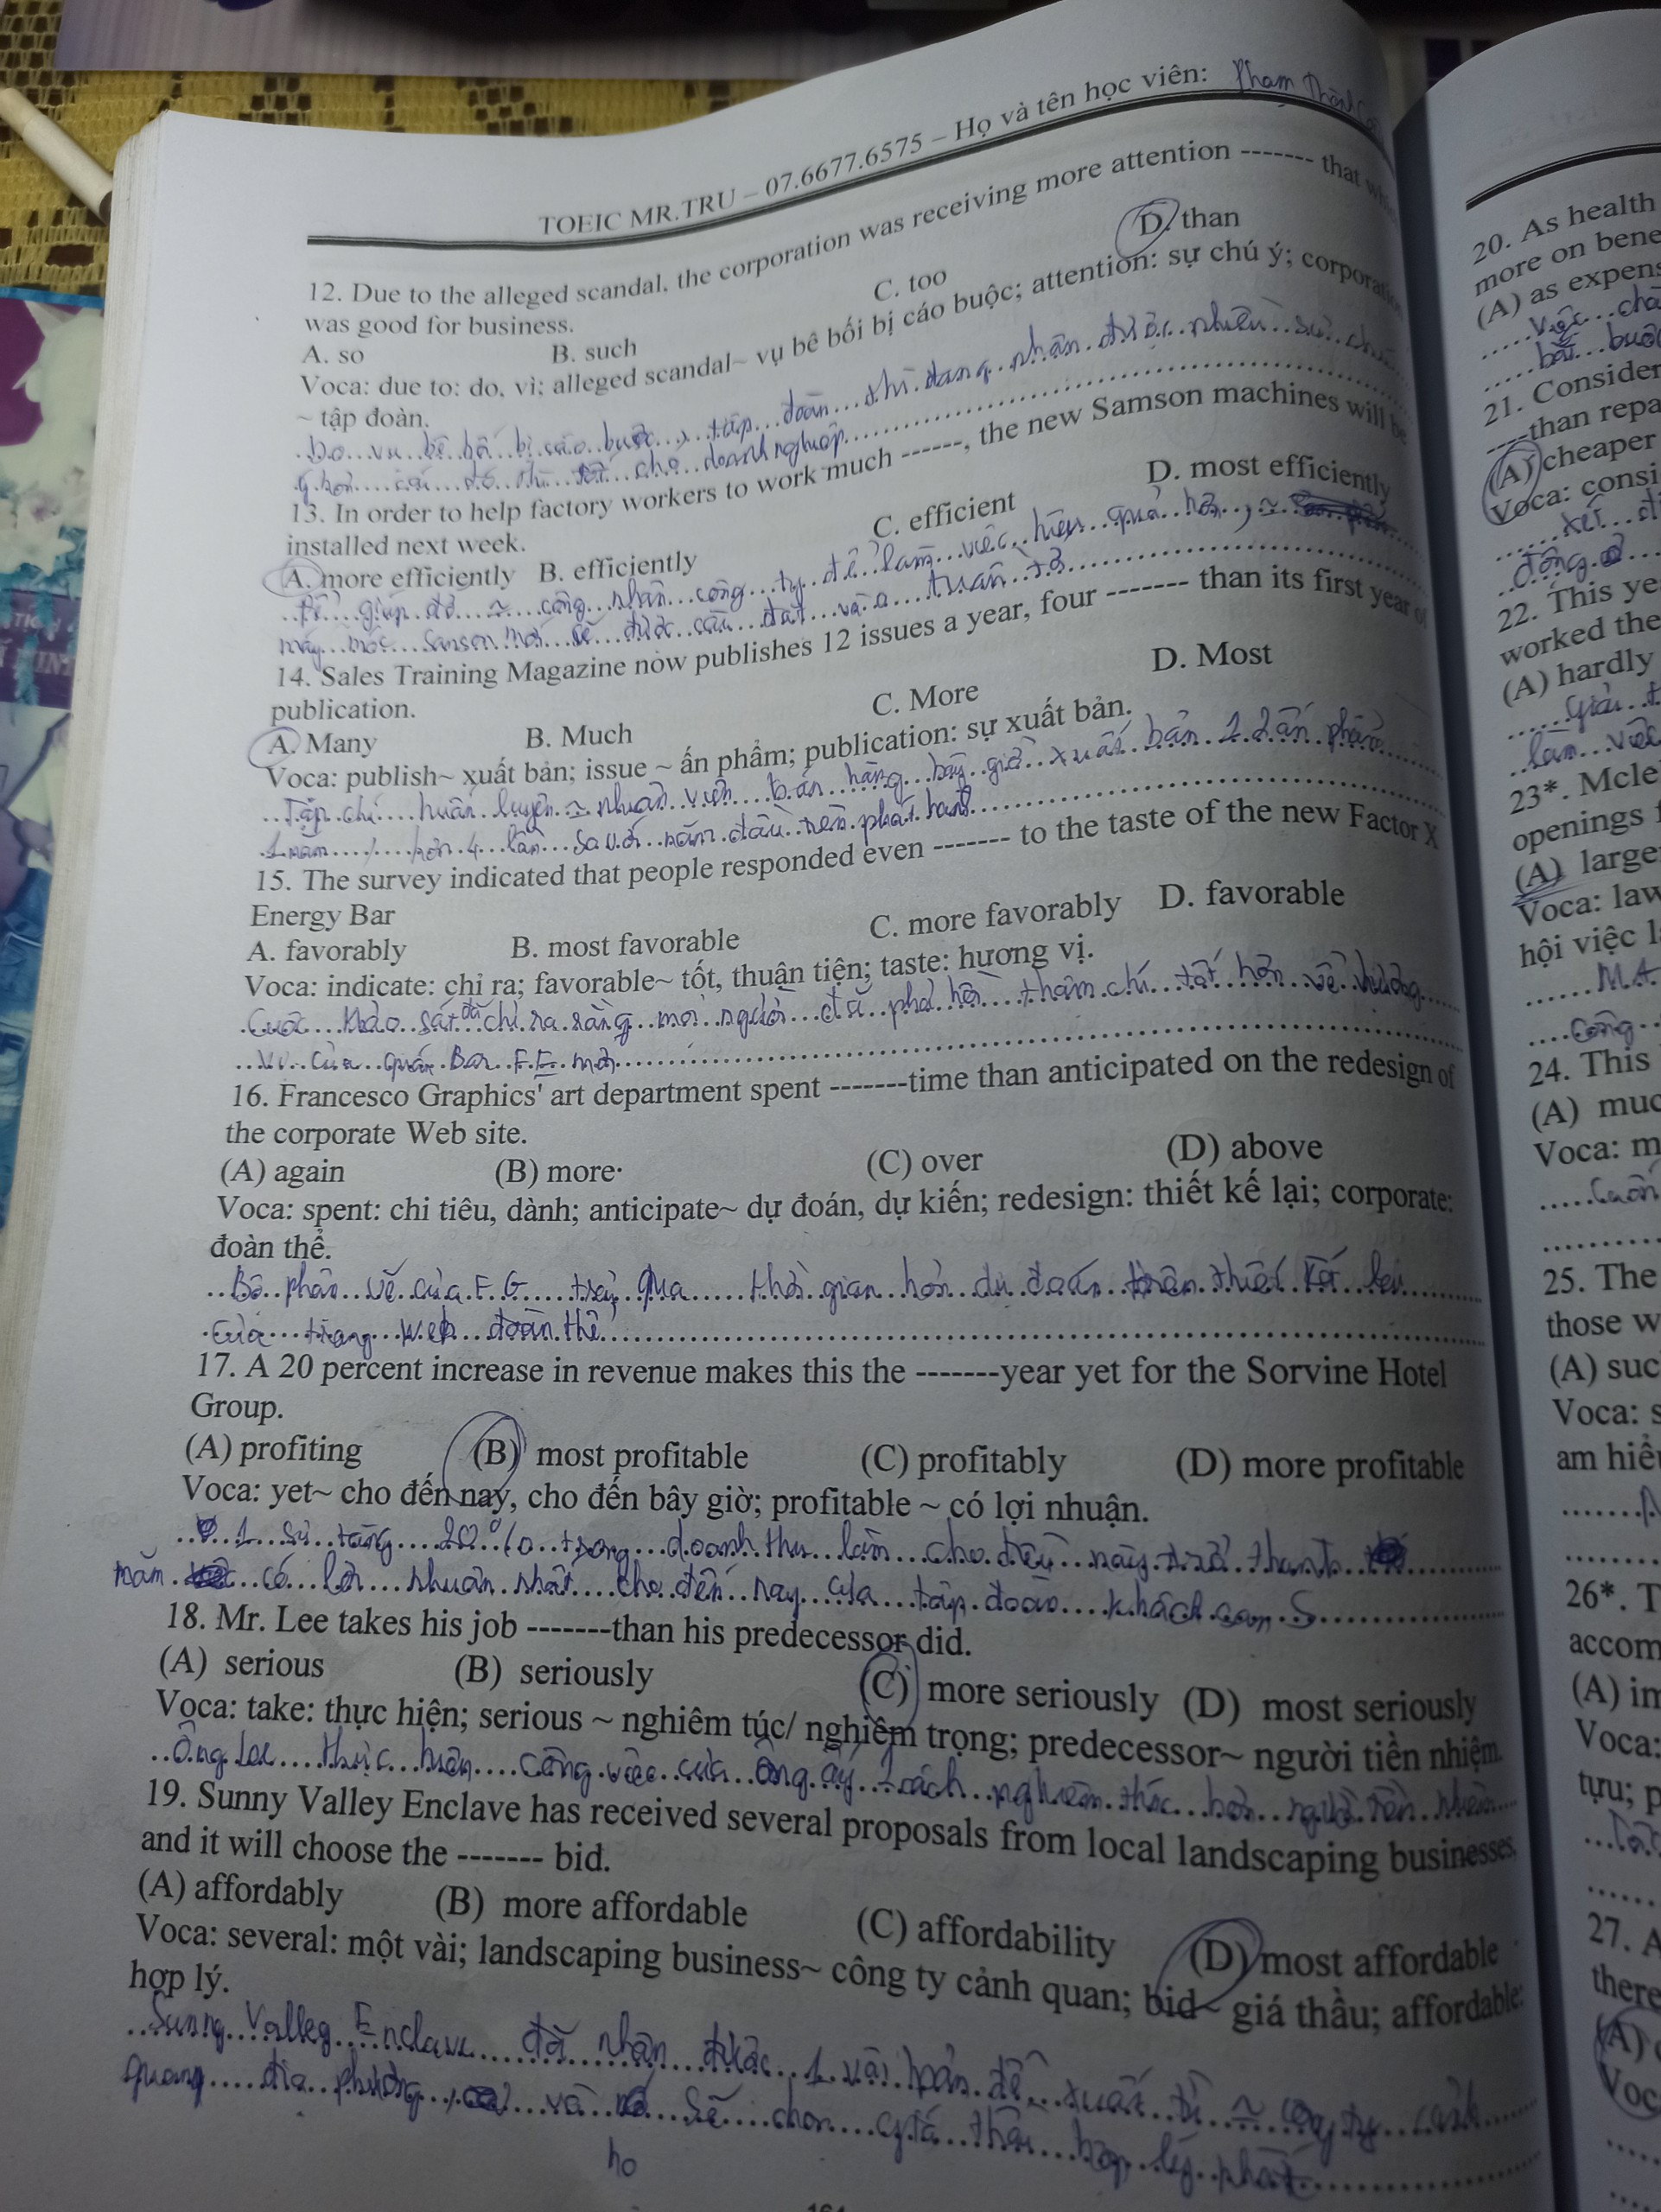 TOEIC MR.TRU – 07.6677.6575 – Họ và tên học viên: Phạm
12. Due to the alleged scandal, the corporation was receiving more attention ------- that
was good for business.
A. so B. such C. too D. than
Voca: due to: do, vì; alleged scandal~ vụ bê bối bị cáo buộc; attention: sự chú ý;
~ tập đoàn.
Do vụ bê bối bị cáo buộc, tập đoàn thì đang nhận được nhiều sự
ý hơn cái đó thì tốt cho doanh nghiệp
13. In order to help factory workers to work much ------, the new Samson machines will be
installed next week.
A. more efficiently B. efficiently C. efficient D. most efficiently
Để giúp đỡ ~ công nhân công ty để làm việc hiệu quả hơn, ~
máy móc Samson mới sẽ được cài đặt vào tuần tới
14. Sales Training Magazine now publishes 12 issues a year, four ------- than its first year of
publication.
A. Many B. Much C. More D. Most
Voca: publish~ xuất bản; issue ~ ấn phẩm; publication: sự xuất bản.
Tạp chí huấn luyện ~ nhuấn viên bán hàng bây giờ xuất bản 12 ấn phẩm
1 năm, hơn 4 lần so với năm đầu tiên phát hành
15. The survey indicated that people responded even ------- to the taste of the new Factor X
Energy Bar
A. favorably B. most favorable C. more favorably D. favorable
Voca: indicate: chỉ ra; favorable~ tốt, thuận tiện; taste: hương vị.
Cuộc khảo sát đã chỉ ra rằng mọi người đã phả hồi thậm chí tốt hơn về hương
vị của quán Bar F.E mới
16. Francesco Graphics' art department spent -------time than anticipated on the redesign of
the corporate Web site.
(A) again (B) more (C) over (D) above
Voca: spent: chi tiêu, dành; anticipate~ dự đoán, dự kiến; redesign: thiết kế lại; corporate:
đoàn thể.
Bộ phận vẽ của F.G trải qua thời gian hơn dự đoán trên thiết kế lại
của trang Web đoàn thể
17. A 20 percent increase in revenue makes this the -------year yet for the Sorvine Hotel
Group.
(A) profiting (B) most profitable (C) profitably (D) more profitable
Voca: yet~ cho đến nay, cho đến bây giờ; profitable ~ có lợi nhuận.
1 sự tăng 20% trong doanh thu làm cho điều này trở thành
năm có lợi nhuận nhất cho đến nay của tập đoàn khách sạn S
18. Mr. Lee takes his job -------than his predecessor did.
(A) serious (B) seriously (C) more seriously (D) most seriously
Voca: take: thực hiện; serious ~ nghiêm túc/ nghiêm trọng; predecessor~ người tiền nhiệm.
Ông Lee thực hiện công việc của ông ấy 1 cách nghiêm túc hơn người tiền nhiệm
19. Sunny Valley Enclave has received several proposals from local landscaping businesses,
and it will choose the ------- bid.
(A) affordably (B) more affordable (C) affordability (D) most affordable
Voca: several: một vài; landscaping business~ công ty cảnh quan; bid~ giá thầu; affordable:
hợp lý.
Sunny Valley Enclave đã nhận được 1 vài bản đề xuất từ ~ công ty cảnh
quang địa phương, và nó sẽ chọn giá thầu hợp lý nhất
họ
20. As health
more on bene
(A) as expens
việc
bắt buộc
21. Consider
---than repa
(A) cheaper
Voca: consi
xét
động
22. This ye
worked the
(A) hardly
làm việc
23*. Mcle
openings
(A) large
Voca: law
hội việc l
MA
công
24. This
(A) muc
Voca: m
cuốn
25. The
those w
(A) suc
Voca: s
am hiể
26*. T
accom
(A) im
Voca:
tựu; p
27. A
there
(A)
Voc